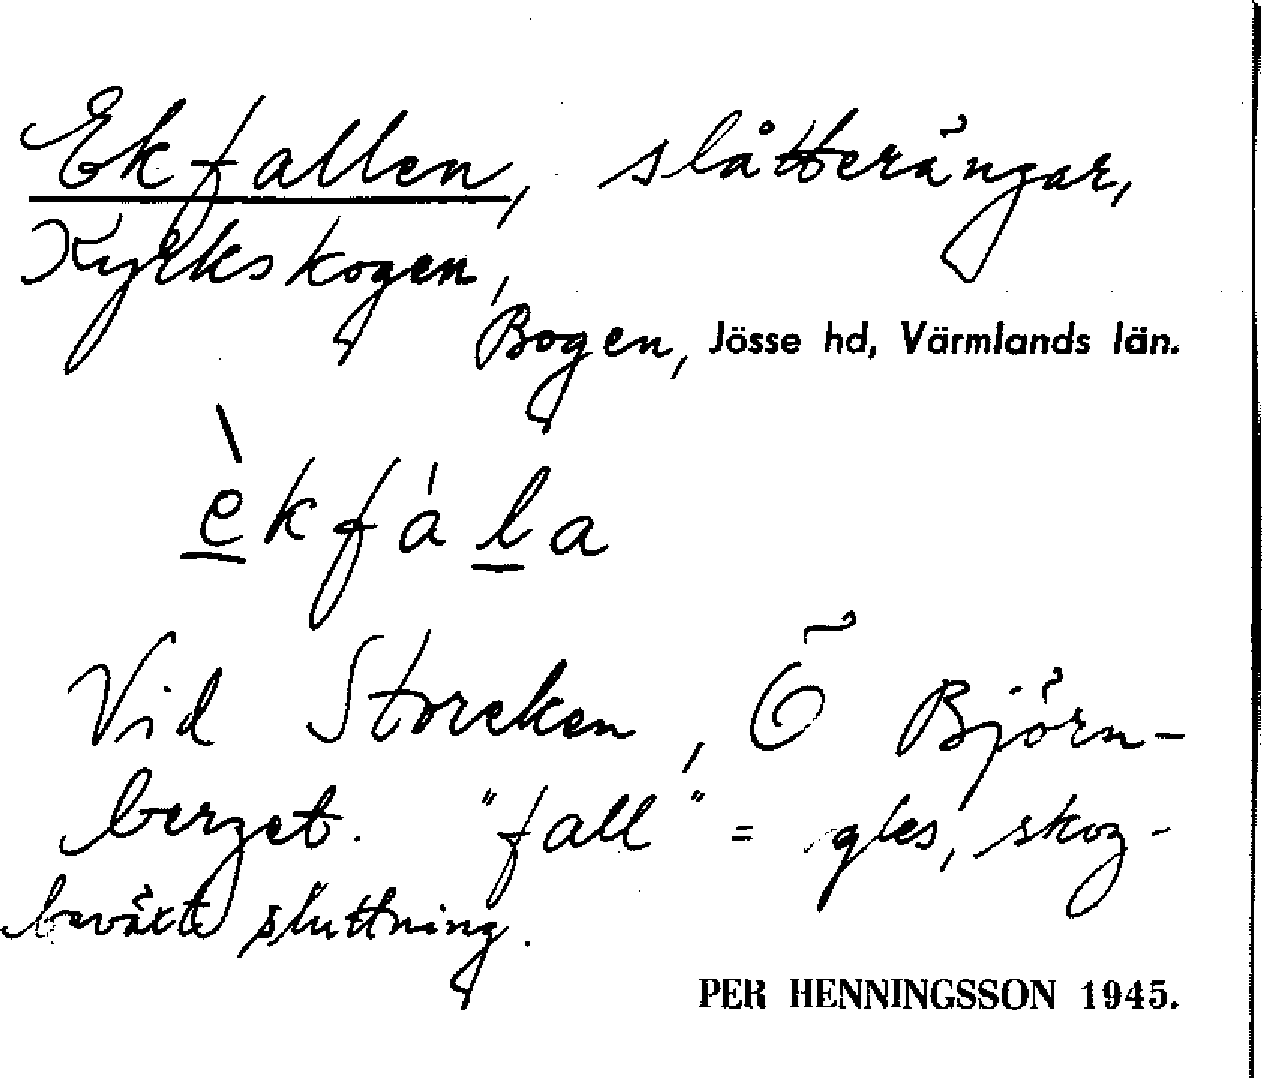 Ekfallen, slåtterängar,
Kyrkskogen,
Bogen, Jösse hd, Värmlands län.
è̱kfáḻa
Vid Storeken, Ö Björn-
berget. "fall" = gles, skog-
beväxt sluttning.
PER HENNINGSSON 1945.